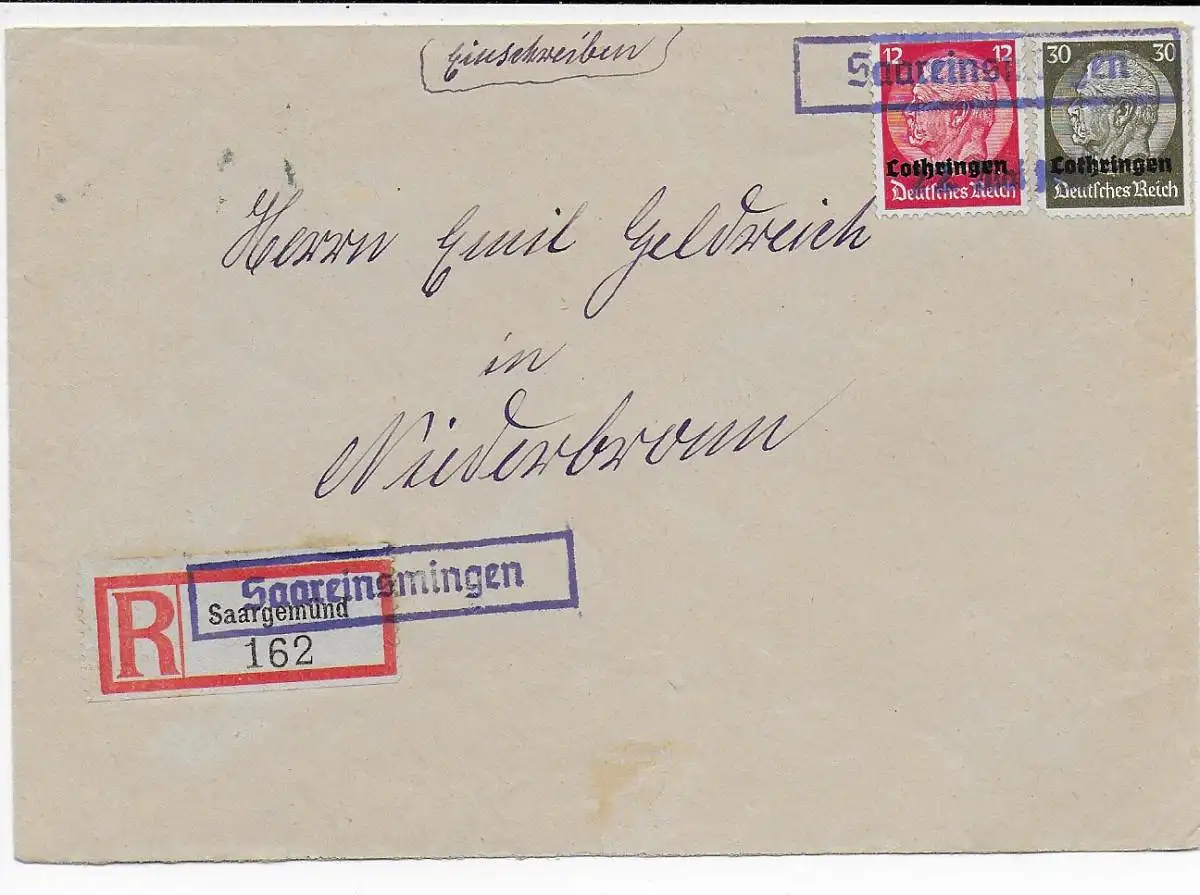 Einschreiben
Saareinsmingen
12 12 30 30
Lothringen Lothringen
Deutsches Reich Deutsches Reich
Herrn Emil Geldreich
in
Niederbronn
Saareinsmingen
R Saargemünd
162